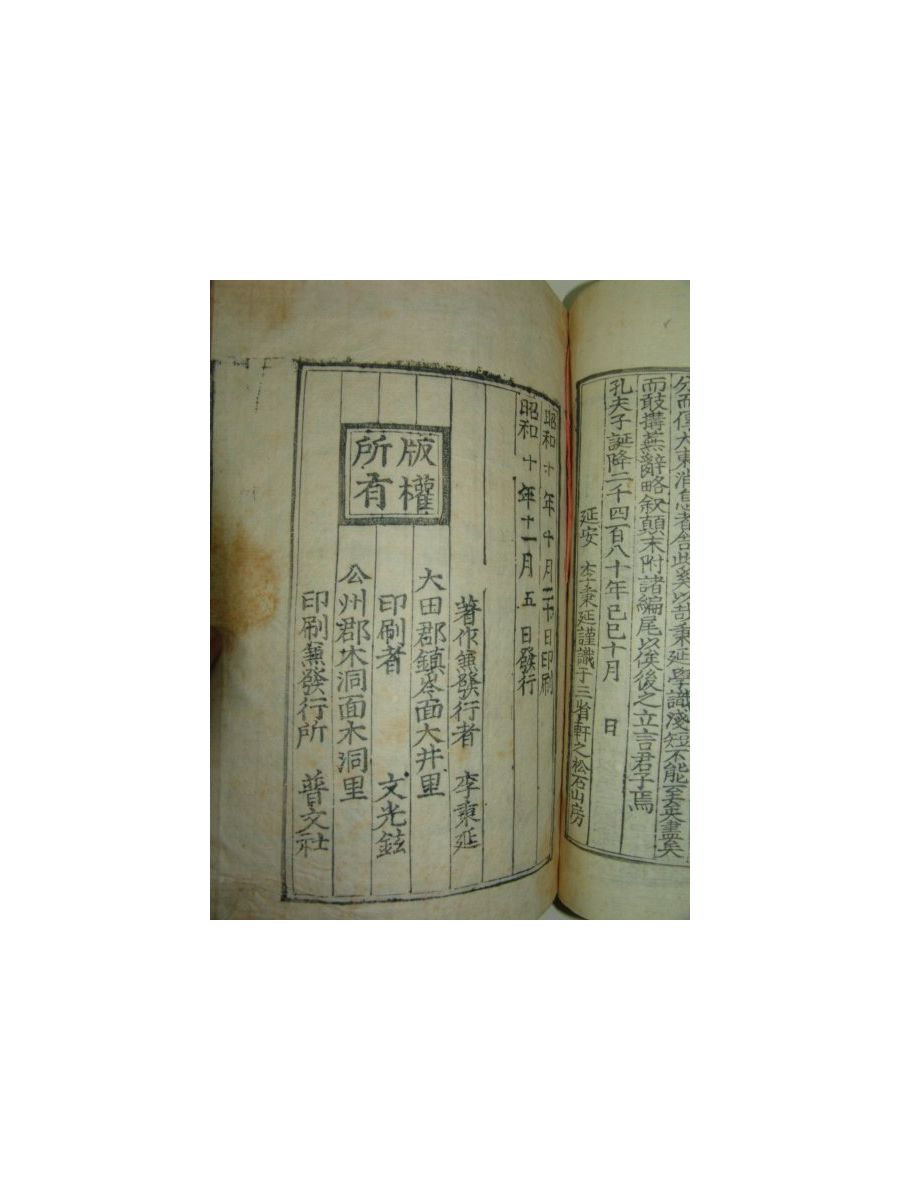 分而傳大東消息者舍此奚以哉秉延學識淺短不能至矣盡矣
而敢搆蕪辭略叙顛末附諸編尾以俟後之立言君子焉
孔夫子誕降二千四百八十年己巳十月 日
延安 李秉延謹識于三省軒之松石山房
昭和十年十月三十日印刷
昭和十年十一月五日發行
著作兼發行者 李秉延
大田郡鎮岑面大井里
印刷者 文光鉉
公州郡木洞面木洞里
印刷兼發行所 普文社
版權
所有